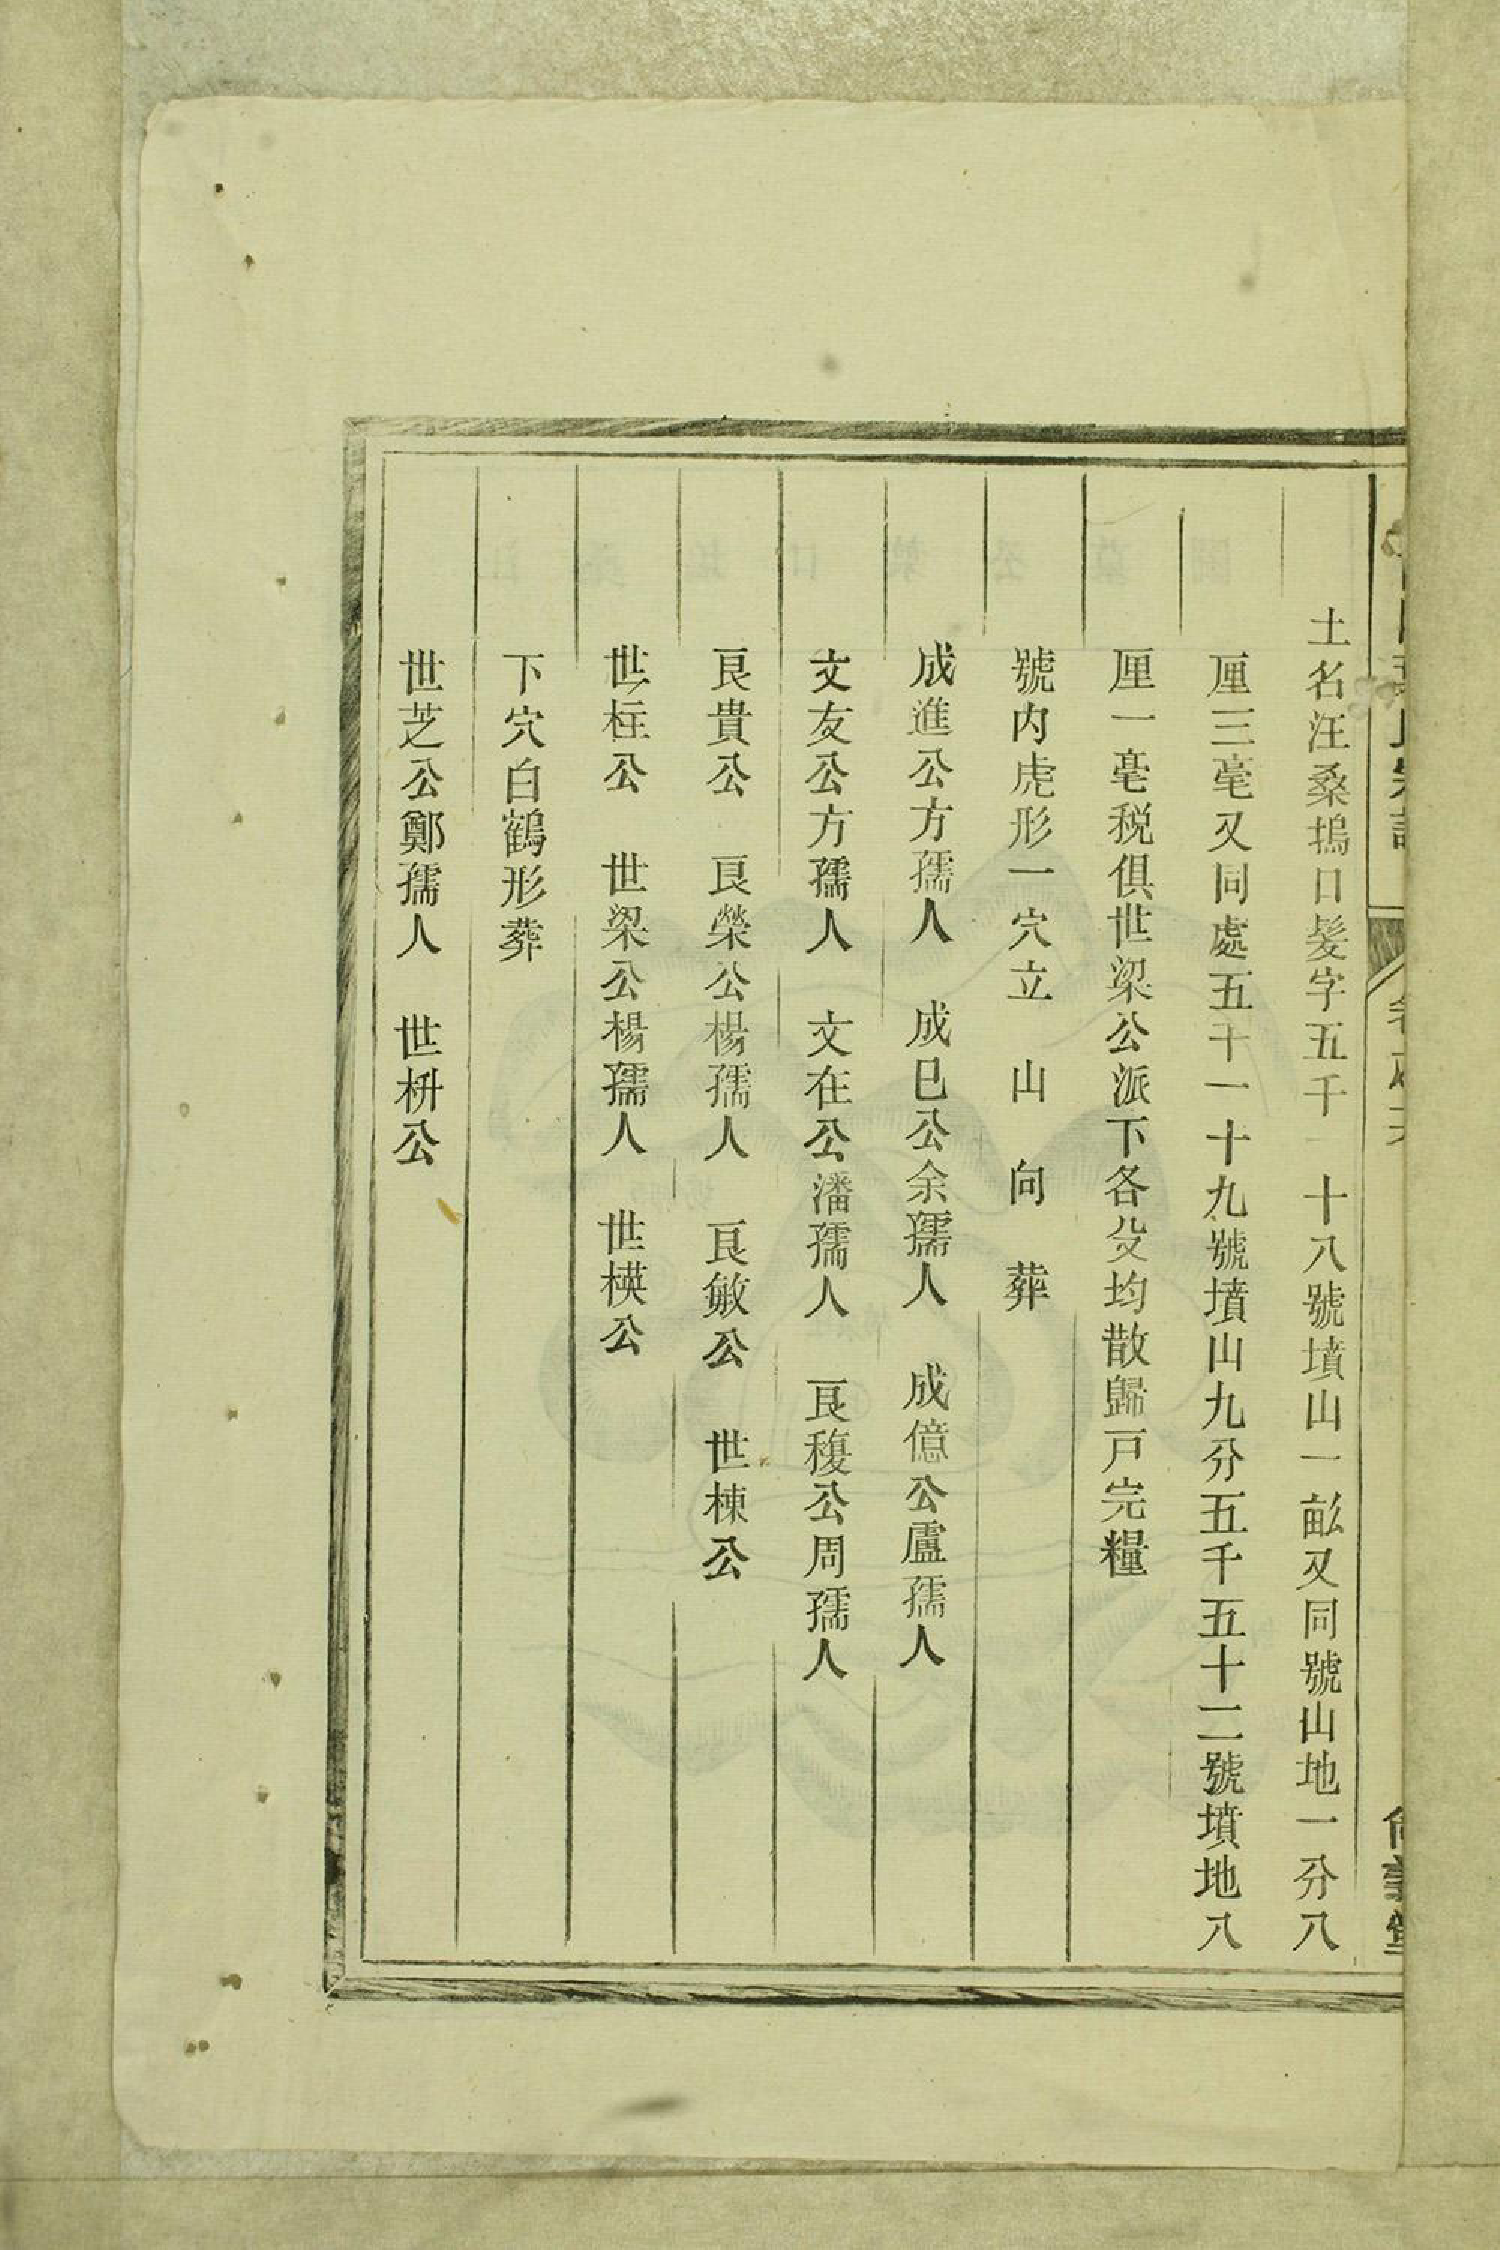 土名汪桑塢口髮字五千一十八號墳山一畝又同號山地一分八
厘三毫又同處五十一十九號墳山九分五千五十二號墳地八
厘一毫税俱世梁公派下各𠔏均散歸戸完糧
號内虎形一穴立　山　向　葬
成進公方孺人　成巳公余孺人　成億公盧孺人
文友公方孺人　文在公潘孺人　良𥠖公周孺人
良貴公　良榮公楊孺人　良敏公　世棟公
世柱公　世梁公楊孺人　世模公
下穴白鶴形葬
世芝公鄭孺人　世枡公